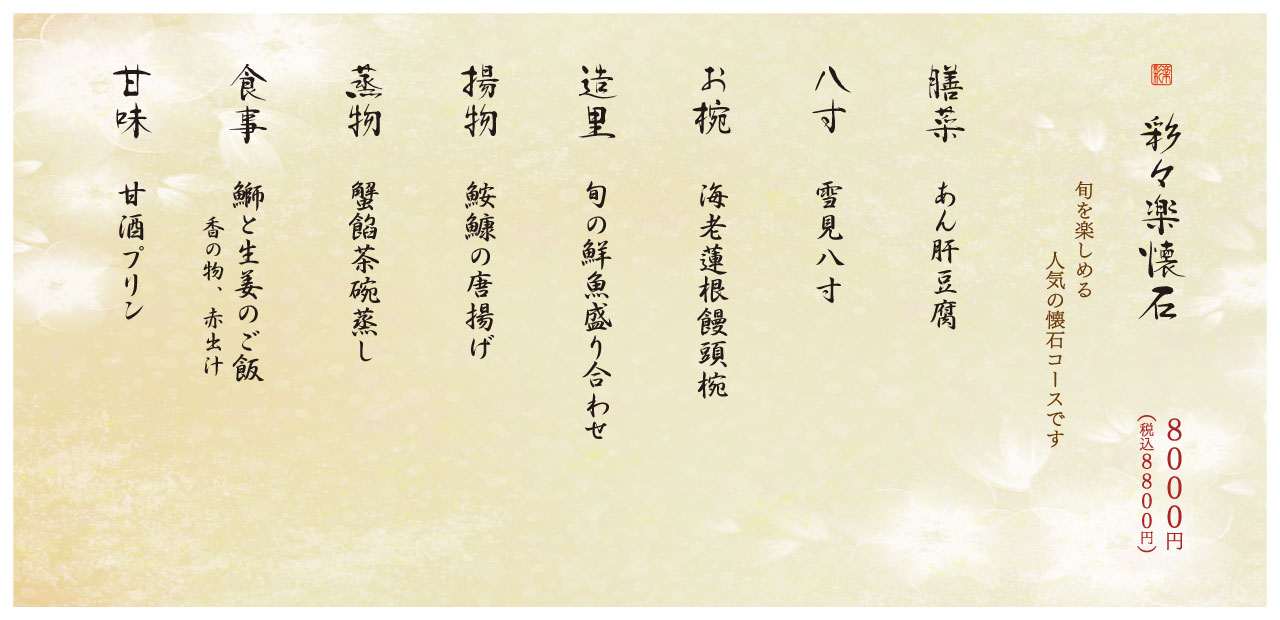 彩々楽懐石
8000円
(税込8800円)
旬を楽しめる
人気の懐石コースです
膳菜 あん肝豆腐
八寸 雪見八寸
お椀 海老蓮根饅頭椀
造里 旬の鮮魚盛り合わせ
揚物 鮟鱇の唐揚げ
蒸物 蟹餡茶碗蒸し
食事 鰤と生姜のご飯
香の物、赤出汁
甘味 甘酒プリン